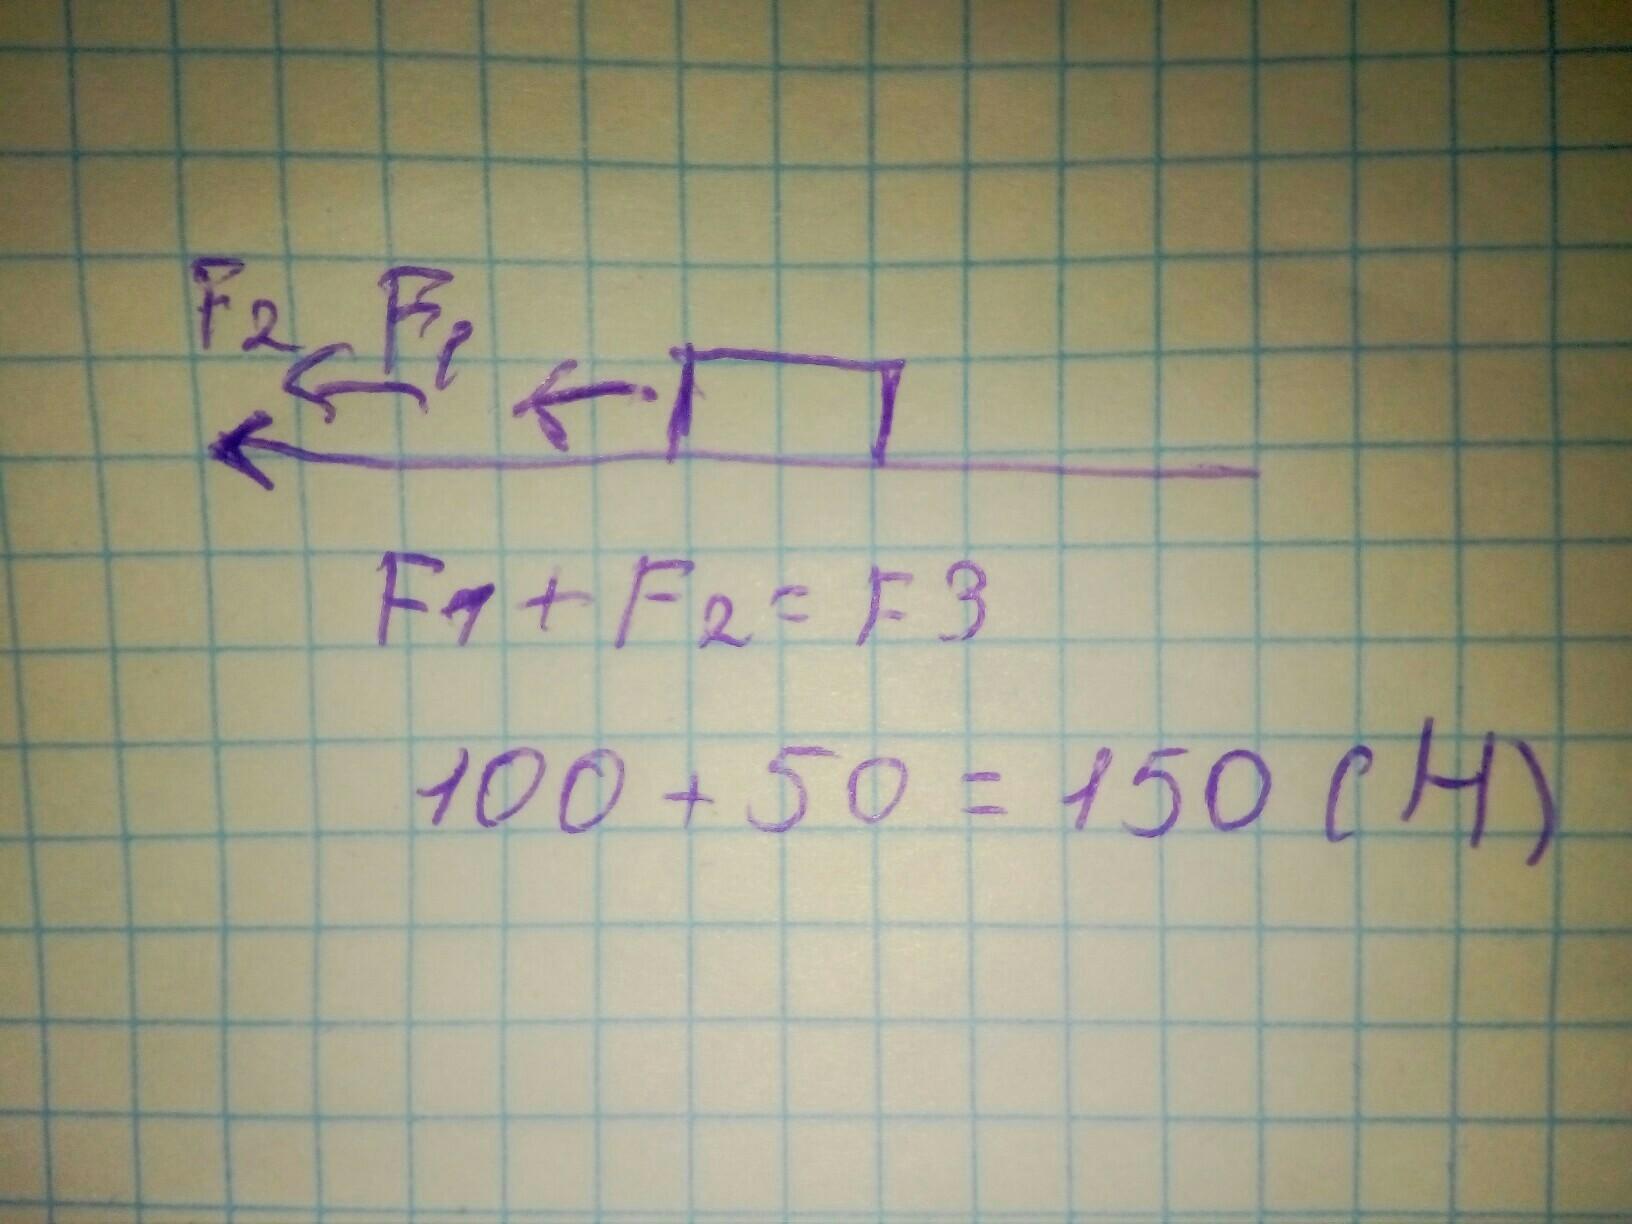 F2 F1
F1 + F2 = F3
100 + 50 = 150 (H)